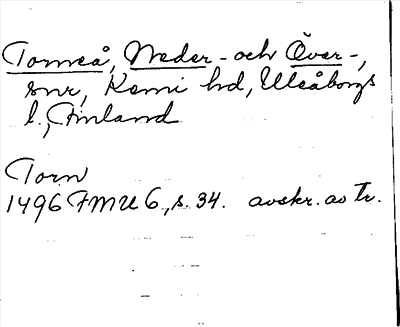 Torneå, Neder- och Över-,
snr, Kemi hd, Uleåborgs
l., Finland
Torn
1496 FMU 6, s. 34. avskr. av Tr.